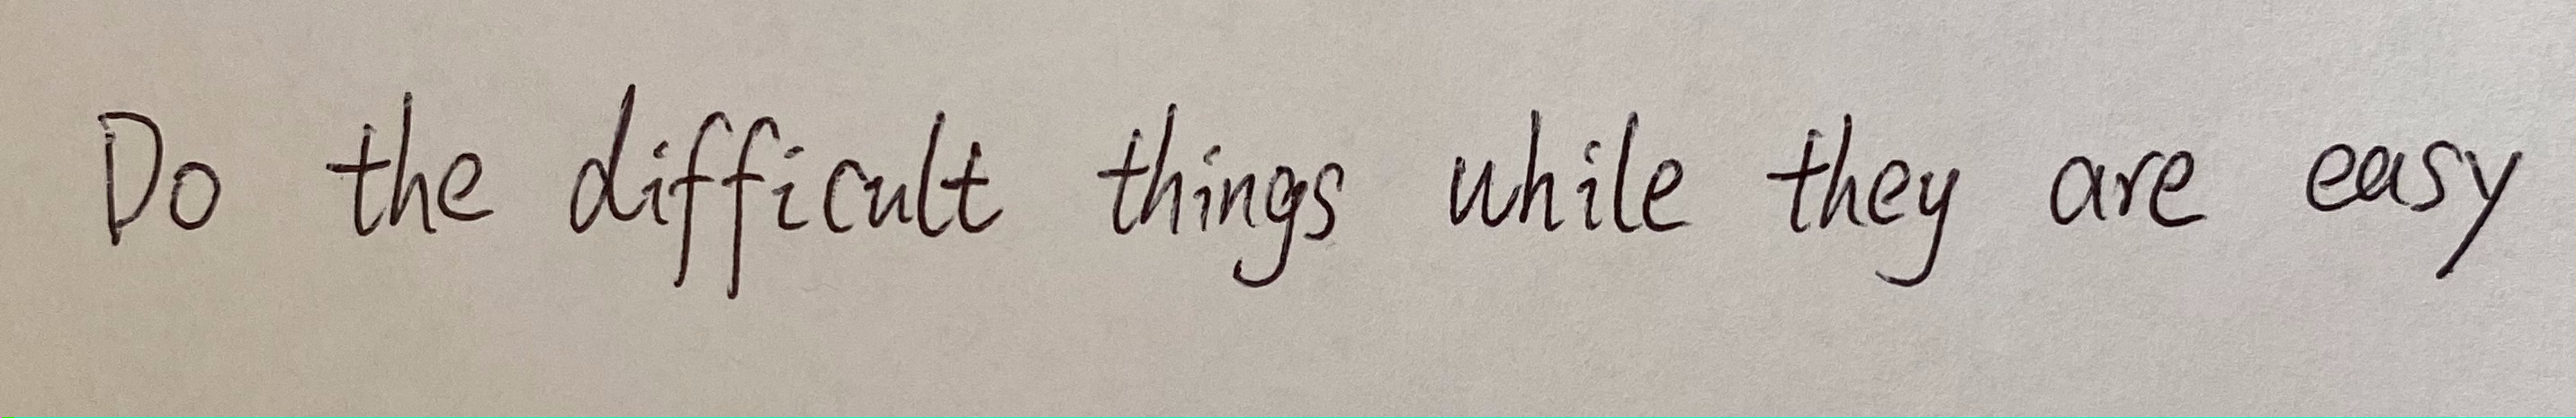 Do the difficult things while they are easy